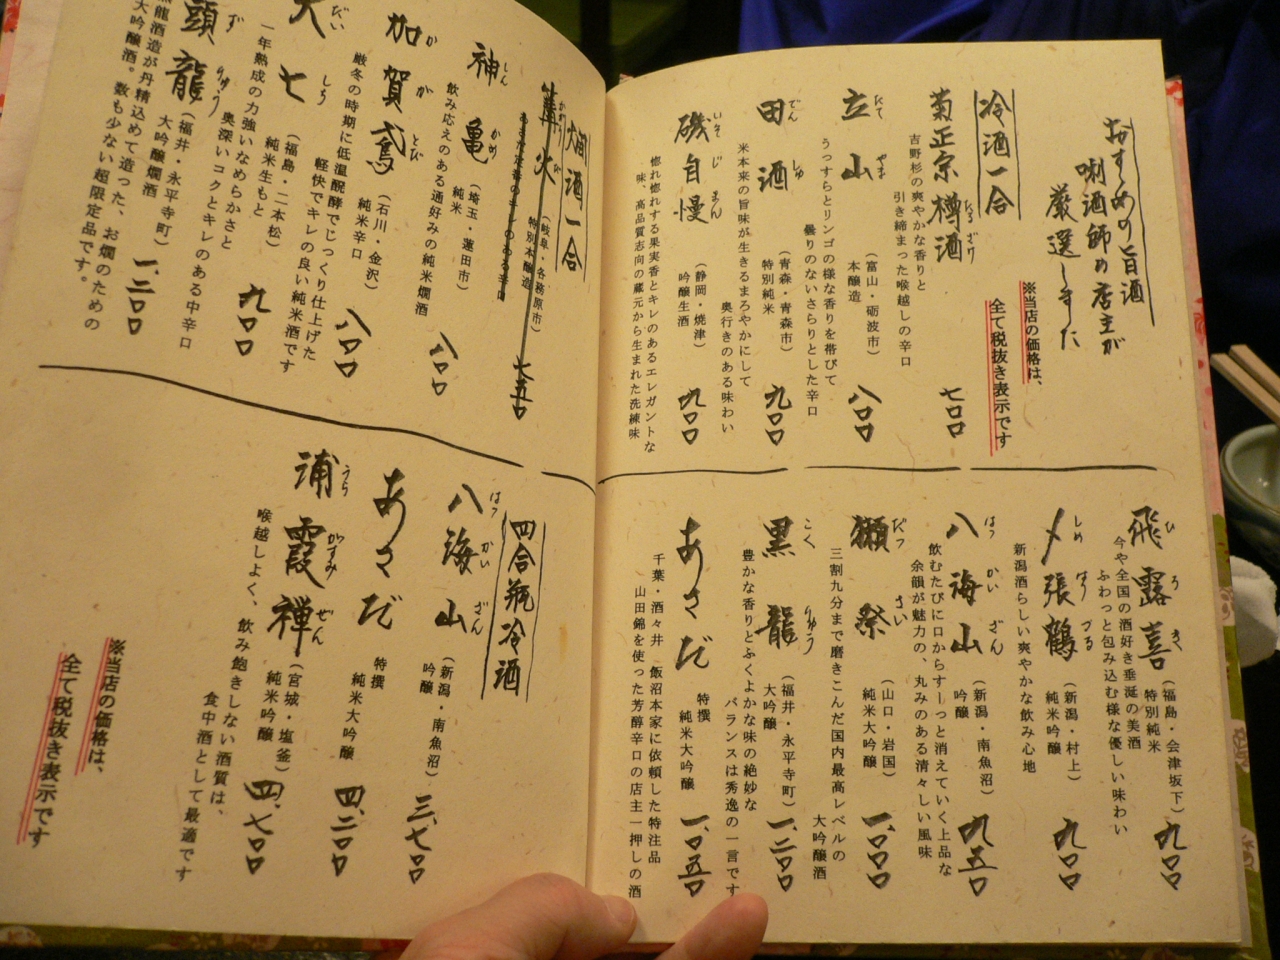 おすすめの旨酒
唎酒師の店主が
厳選しました
※当店の価格は、
全て税抜き表示です
冷酒一合
菊正宗樽酒
たるざけ
吉野杉の爽やかな香りと
引き締まった喉越しの辛口
七〇〇
立山
たてやま
(富山・砺波市)
本醸造
うっすらとリンゴの様な香りを帯びて
曇りのないさらりとした辛口
八〇〇
田酒
でんしゅ
(青森・青森市)
特別純米
米本来の旨味が生きるまろやかにして
奥行きのある味わい
九〇〇
磯自慢
いそじまん
(静岡・焼津)
吟醸生酒
惚れ惚れする果実香とキレのあるエレガントな
味、高品質志向の蔵元から生まれた洗練味
九〇〇
飛露喜
ひろき
(福島・会津坂下)
特別純米
今や全国の酒好き垂涎の美酒
ふわっと包み込む様な優しい味わい
九〇〇
〆張鶴
しめはりづる
(新潟・村上)
純米吟醸
新潟酒らしい爽やかな飲み心地
九〇〇
八海山
はっかいざん
(新潟・南魚沼)
吟醸
飲むたびに口からすーっと消えていく上品な
余韻が魅力の、丸みのある清々しい風味
九五〇
獺祭
だっさい
(山口・岩国)
純米大吟醸
三割九分まで磨きこんだ国内最高レベルの
大吟醸酒
一、〇〇〇
黒龍
こくりゅう
(福井・永平寺町)
大吟醸
豊かな香りとふくよかな味の絶妙な
バランスは秀逸の一言です
一、二〇〇
あさだ
特撰
純米大吟醸
千葉・酒々井 飯沼本家に依頼した特注品
山田錦を使った芳醇辛口の店主一押しの酒
一、〇五〇
燗酒一合
篝火
(岐阜・各務原市)
特別本醸造
七五〇
神亀
しんかめ
(埼玉・蓮田市)
純米
飲み応えのある通好みの純米燗酒
八〇〇
加賀鳶
かがとび
(石川・金沢)
純米辛口
厳冬の時期に低温醗酵でじっくり仕上げた
軽快でキレの良い純米酒です
八〇〇
大七
だいしち
(福島・二本松)
純米生もと
一年熟成の力強いなめらかさと
奥深いコクとキレのある中辛口
九〇〇
頭龍
ずりゅう
(福井・永平寺町)
大吟醸燗酒
黒龍酒造が丹精込めて造った、お燗のための
大吟醸酒。数も少ない超限定品です。
一、二〇〇
四合瓶冷酒
八海山
はっかいざん
(新潟・南魚沼)
吟醸
三、七〇〇
あさだ
特撰
純米大吟醸
四、二〇〇
浦霞禅
うらがすみぜん
(宮城・塩釜)
純米吟醸
喉越しよく、飲み飽きしない酒質は、
食中酒として最適です
四、七〇〇
※当店の価格は、
全て税抜き表示です